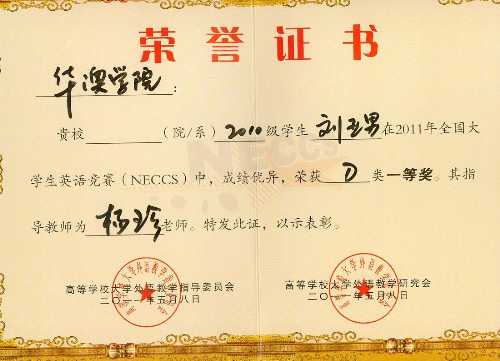 荣誉证书
华澳学院：
贵校（院/系）2010级学生刘亚男在2011年全国大
学生英语竞赛（NECCS）中，成绩优异，荣获D类一等奖。其指
导教师为杨珍老师。特发此证，以示表彰。
高等学校大学外语教学指导委员会 高等学校大学外语教学研究会
二〇一一年五月八日 二〇一一年五月八日
NECCS